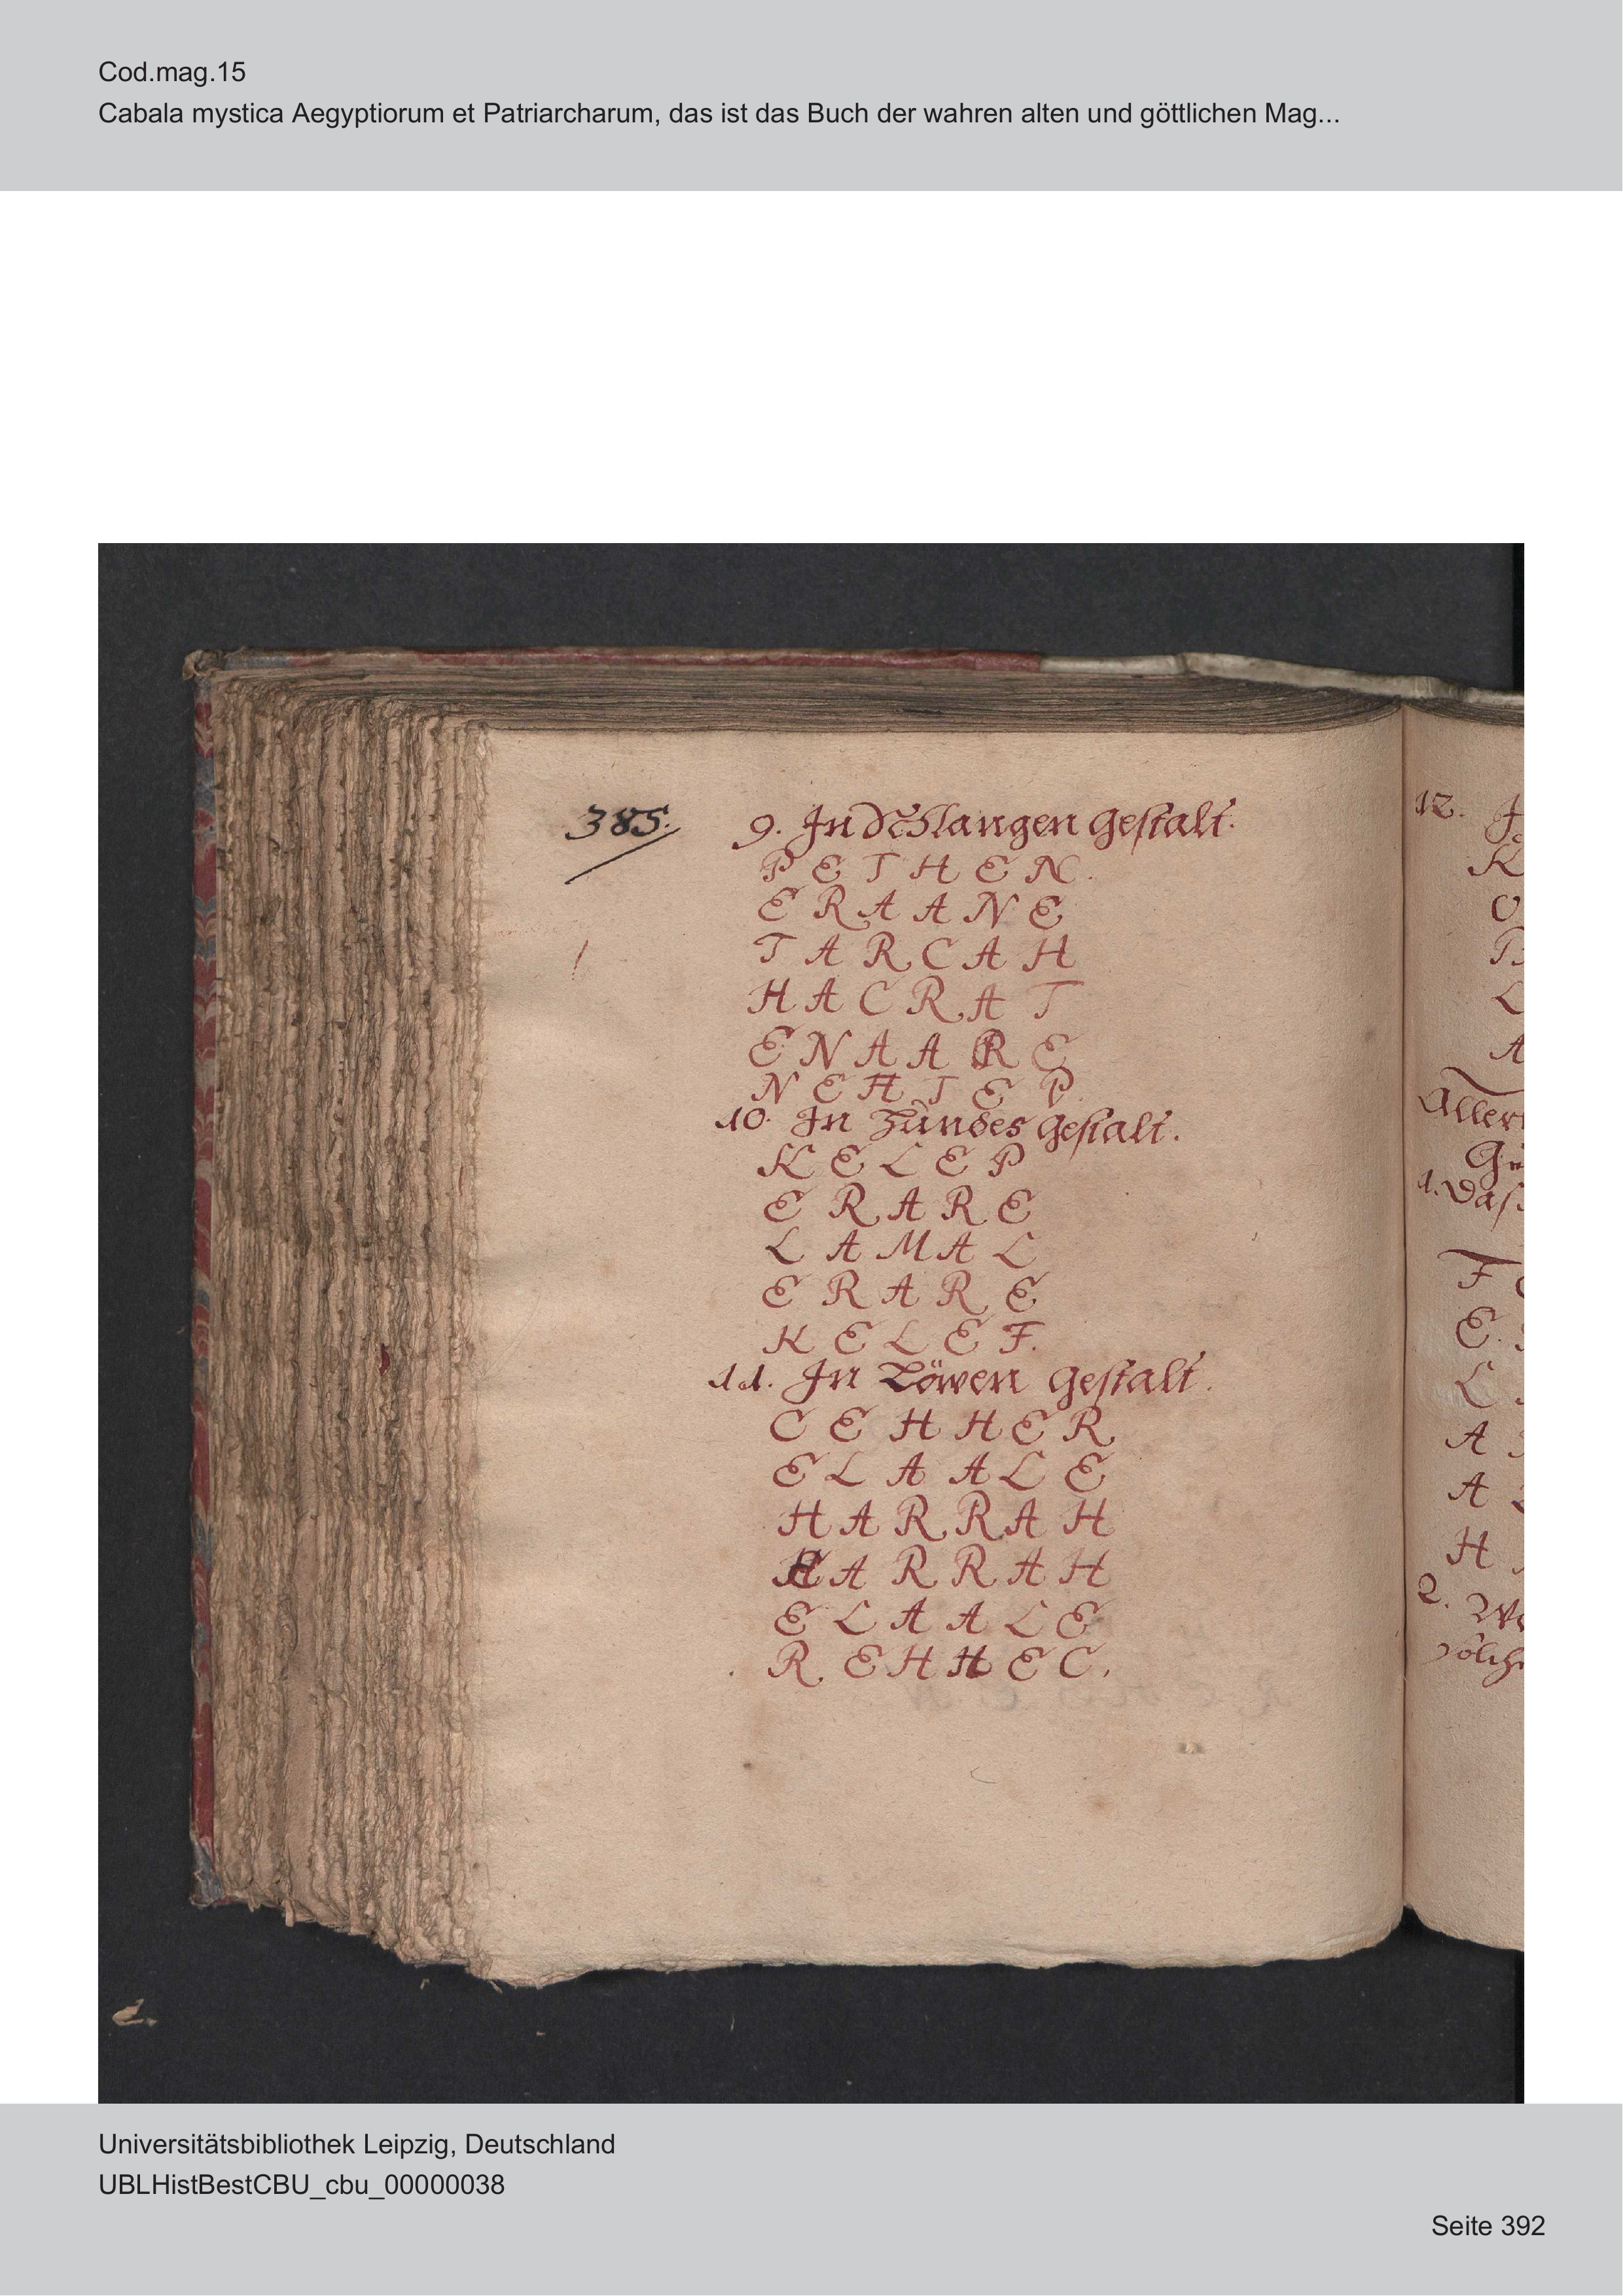 Cod.mag.15
Cabala mystica Aegyptiorum et Patriarcharum, das ist das Buch der wahren alten und göttlichen Mag...
385.
9. In Schlangen gestalt.
P E T H E N.
E R A A N E
T A R C A H
H A C R A T
E N A A R E
N E H T E P.
10. In Hundes gestalt.
K E L E P
E R A R E
L A M A L
E R A R E
K E L E F.
11. In Löwen gestalt.
C E H H E R
E L A A L E
H A R R A H
H A R R A H
E L A A L E
R E H H E C.
12.
K
O
L
A
Aller
1. Das
F
E.
L
A
A
H
2. We
Universitätsbibliothek Leipzig, Deutschland
UBLHistBestCBU_cbu_00000038
Seite 392